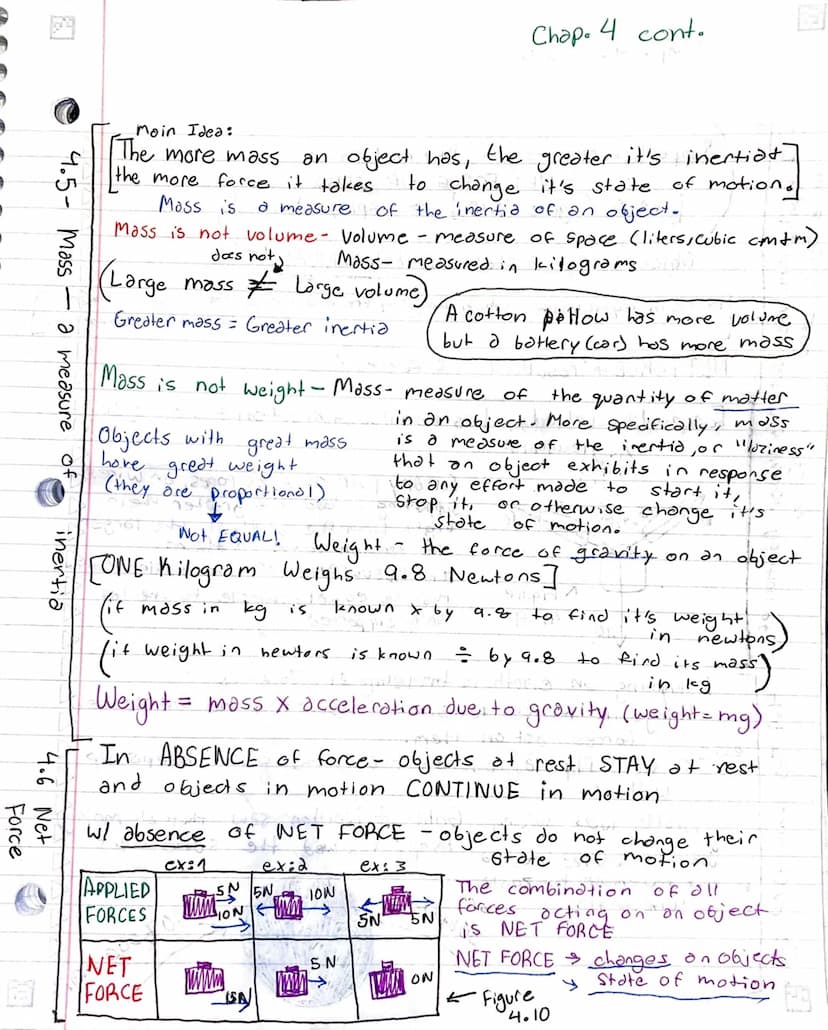 Chap. 4 cont.
4.5 - Mass - a measure of inertia
Main Idea:
[The more mass an object has, the greater it's inertia +
the more force it takes to change it's state of motion.]
Mass is a measure of the inertia of an object.
Mass is not volume - Volume - measure of space (liters, cubic cm + m)
Mass - measured in kilograms
does not
(Large mass ≠ Large volume)
Greater mass = Greater inertia
A cotton pillow has more volume
but a battery (car) has more mass
Mass is not weight - Mass - measure of the quantity of matter
in an object. More specifically, mass
is a measure of the inertia, or "laziness"
that an object exhibits in response
to any effort made to start it,
stop it, or otherwise change it's
state of motion.
Objects with great mass
have great weight
(they are proportional)
↓
Not EQUAL!
Weight - the force of gravity on an object
[ONE Kilogram Weighs 9.8 Newtons]
(if mass in kg is known x by 9.8 to find it's weight
in newtons)
(if weight in newtons is known ÷ by 9.8 to find its mass)
in kg
Weight = mass x acceleration due to gravity (weight = mg)
4.6 Net Force
In ABSENCE of force - objects at rest STAY at rest
and objects in motion CONTINUE in motion
w/ absence of NET FORCE - objects do not change their
state of motion
ex:1 ex:2 ex:3
APPLIED
FORCES
5N
10N
5N 10N
5N 5N
NET
FORCE
15N
5N
0N
The combination of all
forces acting on an object
is NET FORCE
NET FORCE → changes on objects
→ state of motion
← Figure
4.10